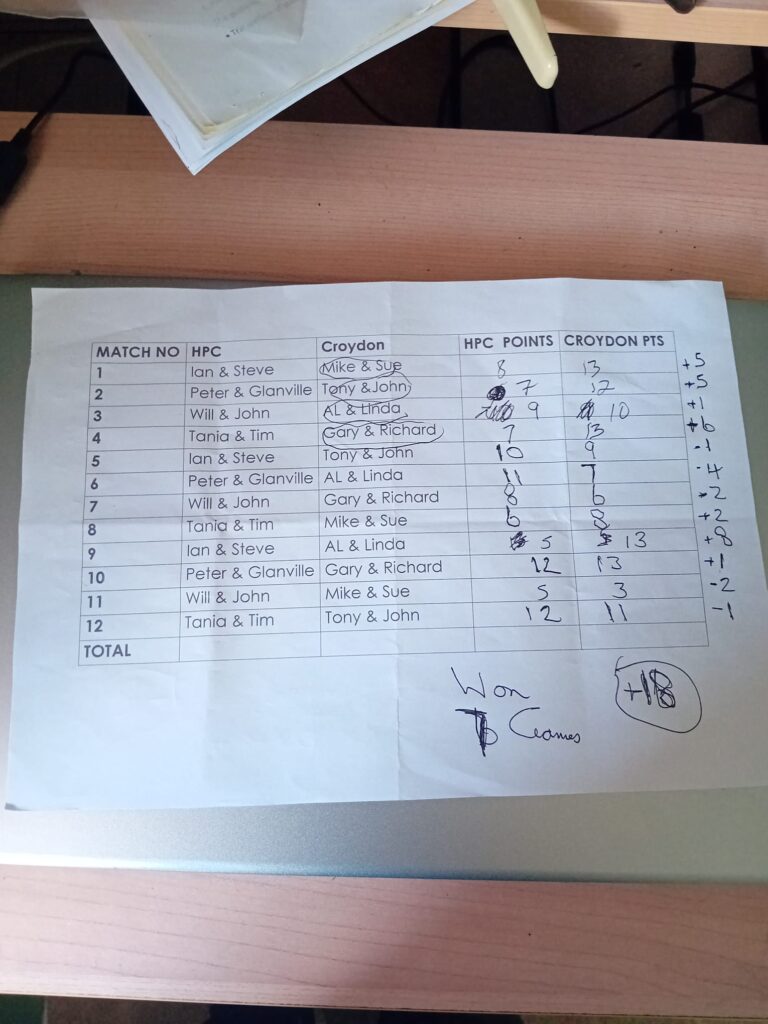 MATCH NO HPC Croydon HPC POINTS CROYDON PTS
1 Ian & Steve Mike & Sue 8 13 +5
2 Peter & Glanville Tony &John 7 12 +5
3 Will & John AL & Linda 9 10 +1
4 Tania & Tim Gary & Richard 7 13 +6
5 Ian & Steve Tony & John 10 9 -1
6 Peter & Glanville AL & Linda 11 7 -4
7 Will & John Gary & Richard 8 6 -2
8 Tania & Tim Mike & Sue 6 8 +2
9 Ian & Steve AL & Linda 5 13 +8
10 Peter & Glanville Gary & Richard 12 13 +1
11 Will & John Mike & Sue 5 3 -2
12 Tania & Tim Tony & John 12 11 -1
TOTAL
Won +18
Games